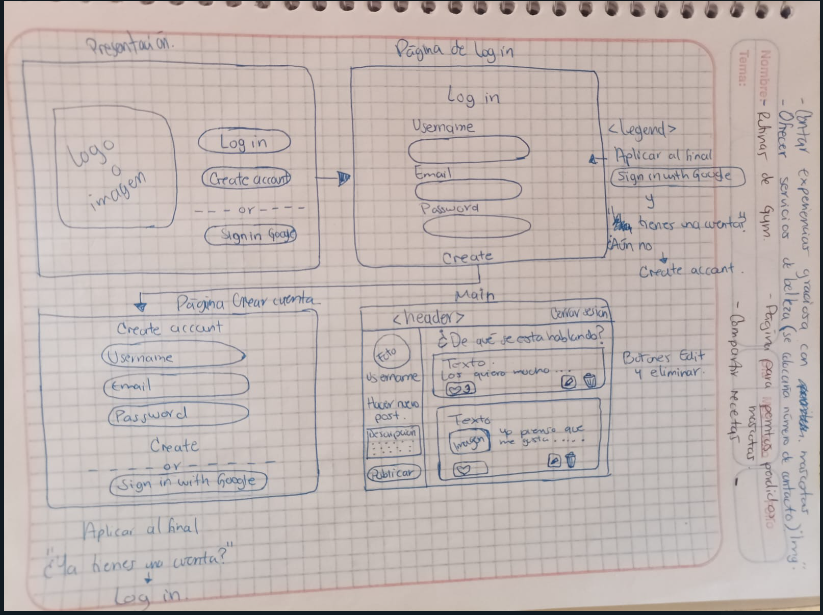 Presentación.
Logo
o
imagen
Log in
Create accant
or
Sign in Google
Página de Log in
Log in
Username
Email
Password
Create
<Legend>
Aplicar al final
Sign in with Google
y
tienes una cuenta?
¿Aún no
Create accant.
Página Crear cuenta
Create account
Username
Email
Password
Create
or
Sign in with Google
Aplicar al final
"¿Ya tienes una cuenta?"
Log in
Main
<header>
Cerrar sesión
Foto
Username
Hacer nuevo
post.
Descripción
Publicar
¿De qué se esta hablando?
Texto.
Los quiero mucho....
Texto
imagen
yo pienso que
me gusta.....
Botones Edit
y eliminar.
Nombre:
Tema:
- Contar experiencias graciosa con mascotas
- Ofrecer servicios de belleza (se número de contacto) "Img".
- Rutinas de Gym
- Página para mascotas
- Compartir recetas